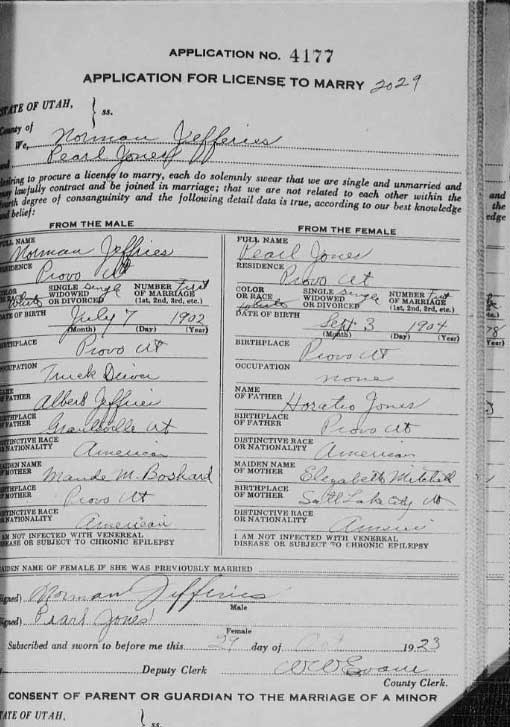 APPLICATION NO. 4177
APPLICATION FOR LICENSE TO MARRY 2029
STATE OF UTAH, } ss.
County of
We, Norman Jefferies
and Pearl Jones
desiring to procure a license to marry, each do solemnly swear that we are single and unmarried and
may lawfully contract and be joined in marriage; that we are not related to each other within the
fourth degree of consanguinity and the following detail data is true, according to our best knowledge
and belief:
FROM THE MALE
FULL NAME Norman Jeffries
RESIDENCE Provo Ut
COLOR OR RACE White SINGLE WIDOWED OR DIVORCED Single NUMBER OF MARRIAGE (1st, 2nd, 3rd, etc.) First
DATE OF BIRTH July 7 1902
(Month) (Day) (Year)
BIRTHPLACE Provo Ut
OCCUPATION Truck Driver
NAME OF FATHER Albert Jeffries
BIRTHPLACE OF FATHER Grantsville Ut
DISTINCTIVE RACE OR NATIONALITY American
MAIDEN NAME OF MOTHER Maude M. Boshard
BIRTHPLACE OF MOTHER Provo Ut
DISTINCTIVE RACE OR NATIONALITY American
I AM NOT INFECTED WITH VENEREAL
DISEASE OR SUBJECT TO CHRONIC EPILEPSY
FROM THE FEMALE
FULL NAME Pearl Jones
RESIDENCE Provo Ut
COLOR OR RACE White SINGLE WIDOWED OR DIVORCED Single NUMBER OF MARRIAGE (1st, 2nd, 3rd, etc.) First
DATE OF BIRTH Sept 3 1904
(Month) (Day) (Year)
BIRTHPLACE Provo Ut
OCCUPATION none
NAME OF FATHER Horatio Jones
BIRTHPLACE OF FATHER Provo Ut
DISTINCTIVE RACE OR NATIONALITY American
MAIDEN NAME OF MOTHER Elizabeth Mitchell
BIRTHPLACE OF MOTHER Salt Lake City Ut
DISTINCTIVE RACE OR NATIONALITY
I AM NOT INFECTED WITH VENEREAL
DISEASE OR SUBJECT TO CHRONIC EPILEPSY
MAIDEN NAME OF FEMALE IF SHE WAS PREVIOUSLY MARRIED
(Signed) Norman Jefferies
Male
(Signed) Pearl Jones
Female
Subscribed and sworn to before me this 29 day of 1923
Deputy Clerk
County Clerk.
CONSENT OF PARENT OR GUARDIAN TO THE MARRIAGE OF A MINOR
STATE OF UTAH, } ss.
and
the
edge